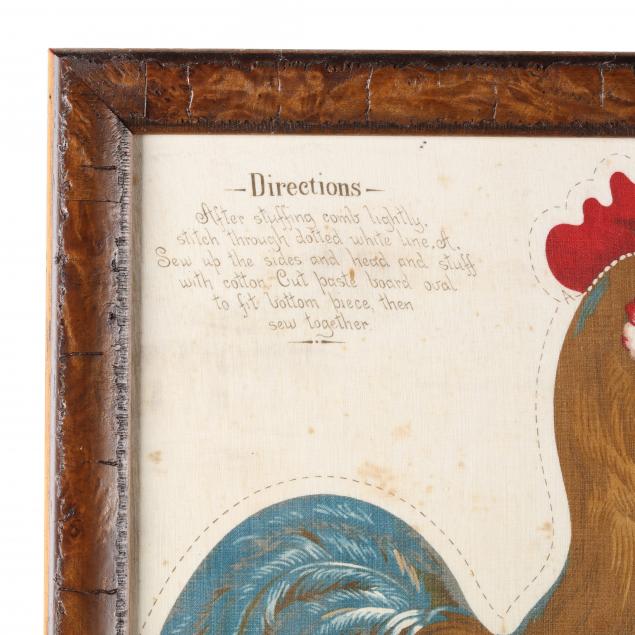 —Directions—
After stuffing comb lightly,
stitch through dotted white line, A.
Sew up the sides and head and stuff
with cotton. Cut paste board oval
to fit bottom piece, then
sew together.
A